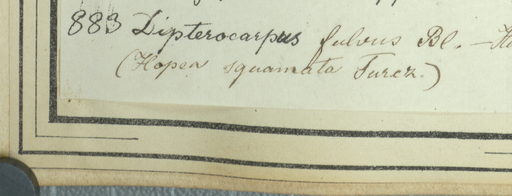 883 Dipterocarpus fulvus Bl. —
(Hopea squamata Turcz.)